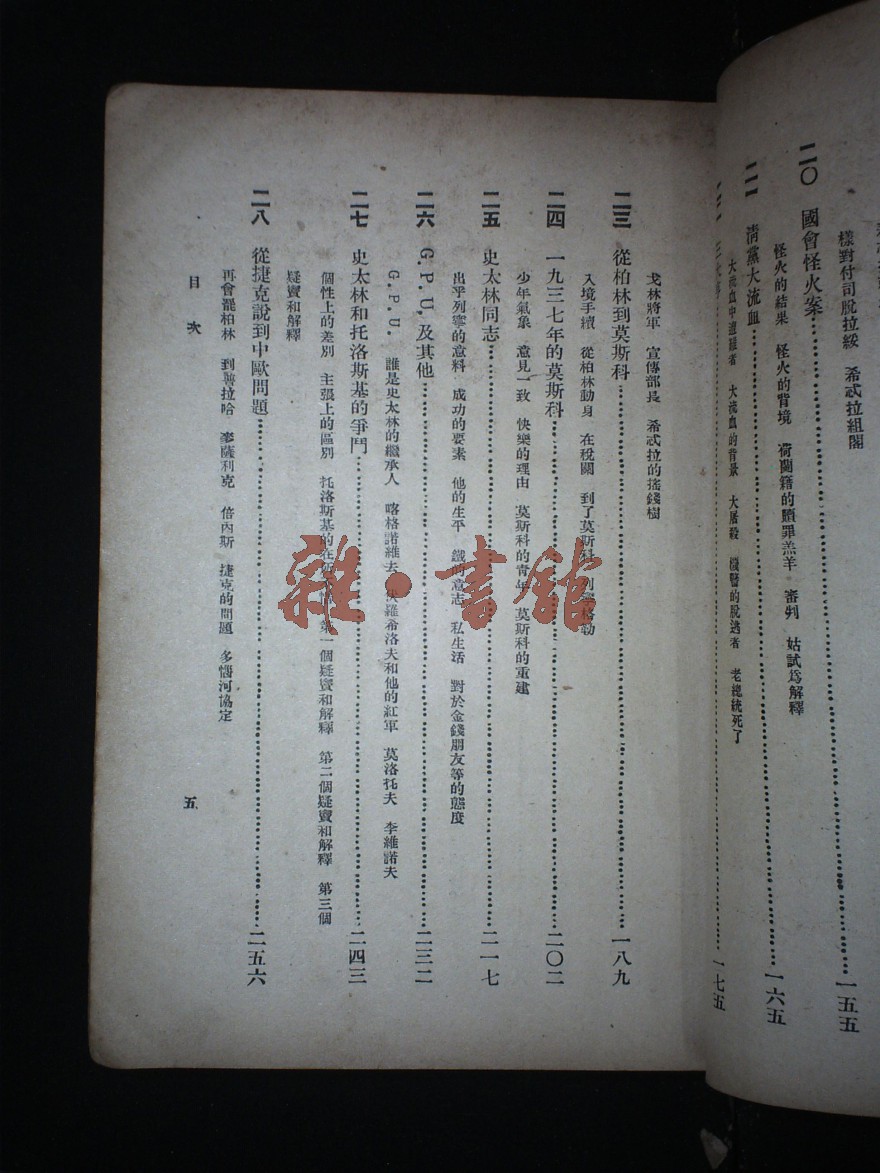 樣對付司脫拉綏　希忒拉組閣
二〇　國會怪火案……一五五
怪火的結果　怪火的背境　荷蘭籍的贖罪羔羊　審判　姑試爲解釋
二一　清黨大流血……一六五
大流血中遭難者　大流血的背景　大屠殺　機警的脫逃者　老總統死了
一七五
戈林將軍　宣傳部長　希忒拉的搖錢樹
二三　從柏林到莫斯科……一八九
入境手續　從柏林動身　在稅關　到了莫斯科　列寧格勒
二四　一九三七年的莫斯科……二〇二
少年氣象　意見一致　快樂的理由　莫斯科的青年　莫斯科的重建
二五　史太林同志……二一七
出乎列寧的意料　成功的要素　他的生平　鐵的意志　私生活　對於金錢朋友等的態度
二六　G.P.U.及其他……二三二
G.P.U.　誰是史太林的繼承人　喀格諾維去　伏羅希洛夫和他的紅軍　莫洛托夫　李維諾夫
二七　史太林和托洛斯基的爭鬥……二四三
個性上的差別　主張上的區別　托洛斯基的在　第一個疑竇和解釋　第二個疑竇和解釋　第三個
疑竇和解釋
二八　從捷克說到中歐問題……二五六
再會罷柏林　到普拉哈　麥薩利克　倍內斯　捷克的問題　多惱河協定
目次
五
雜·書館